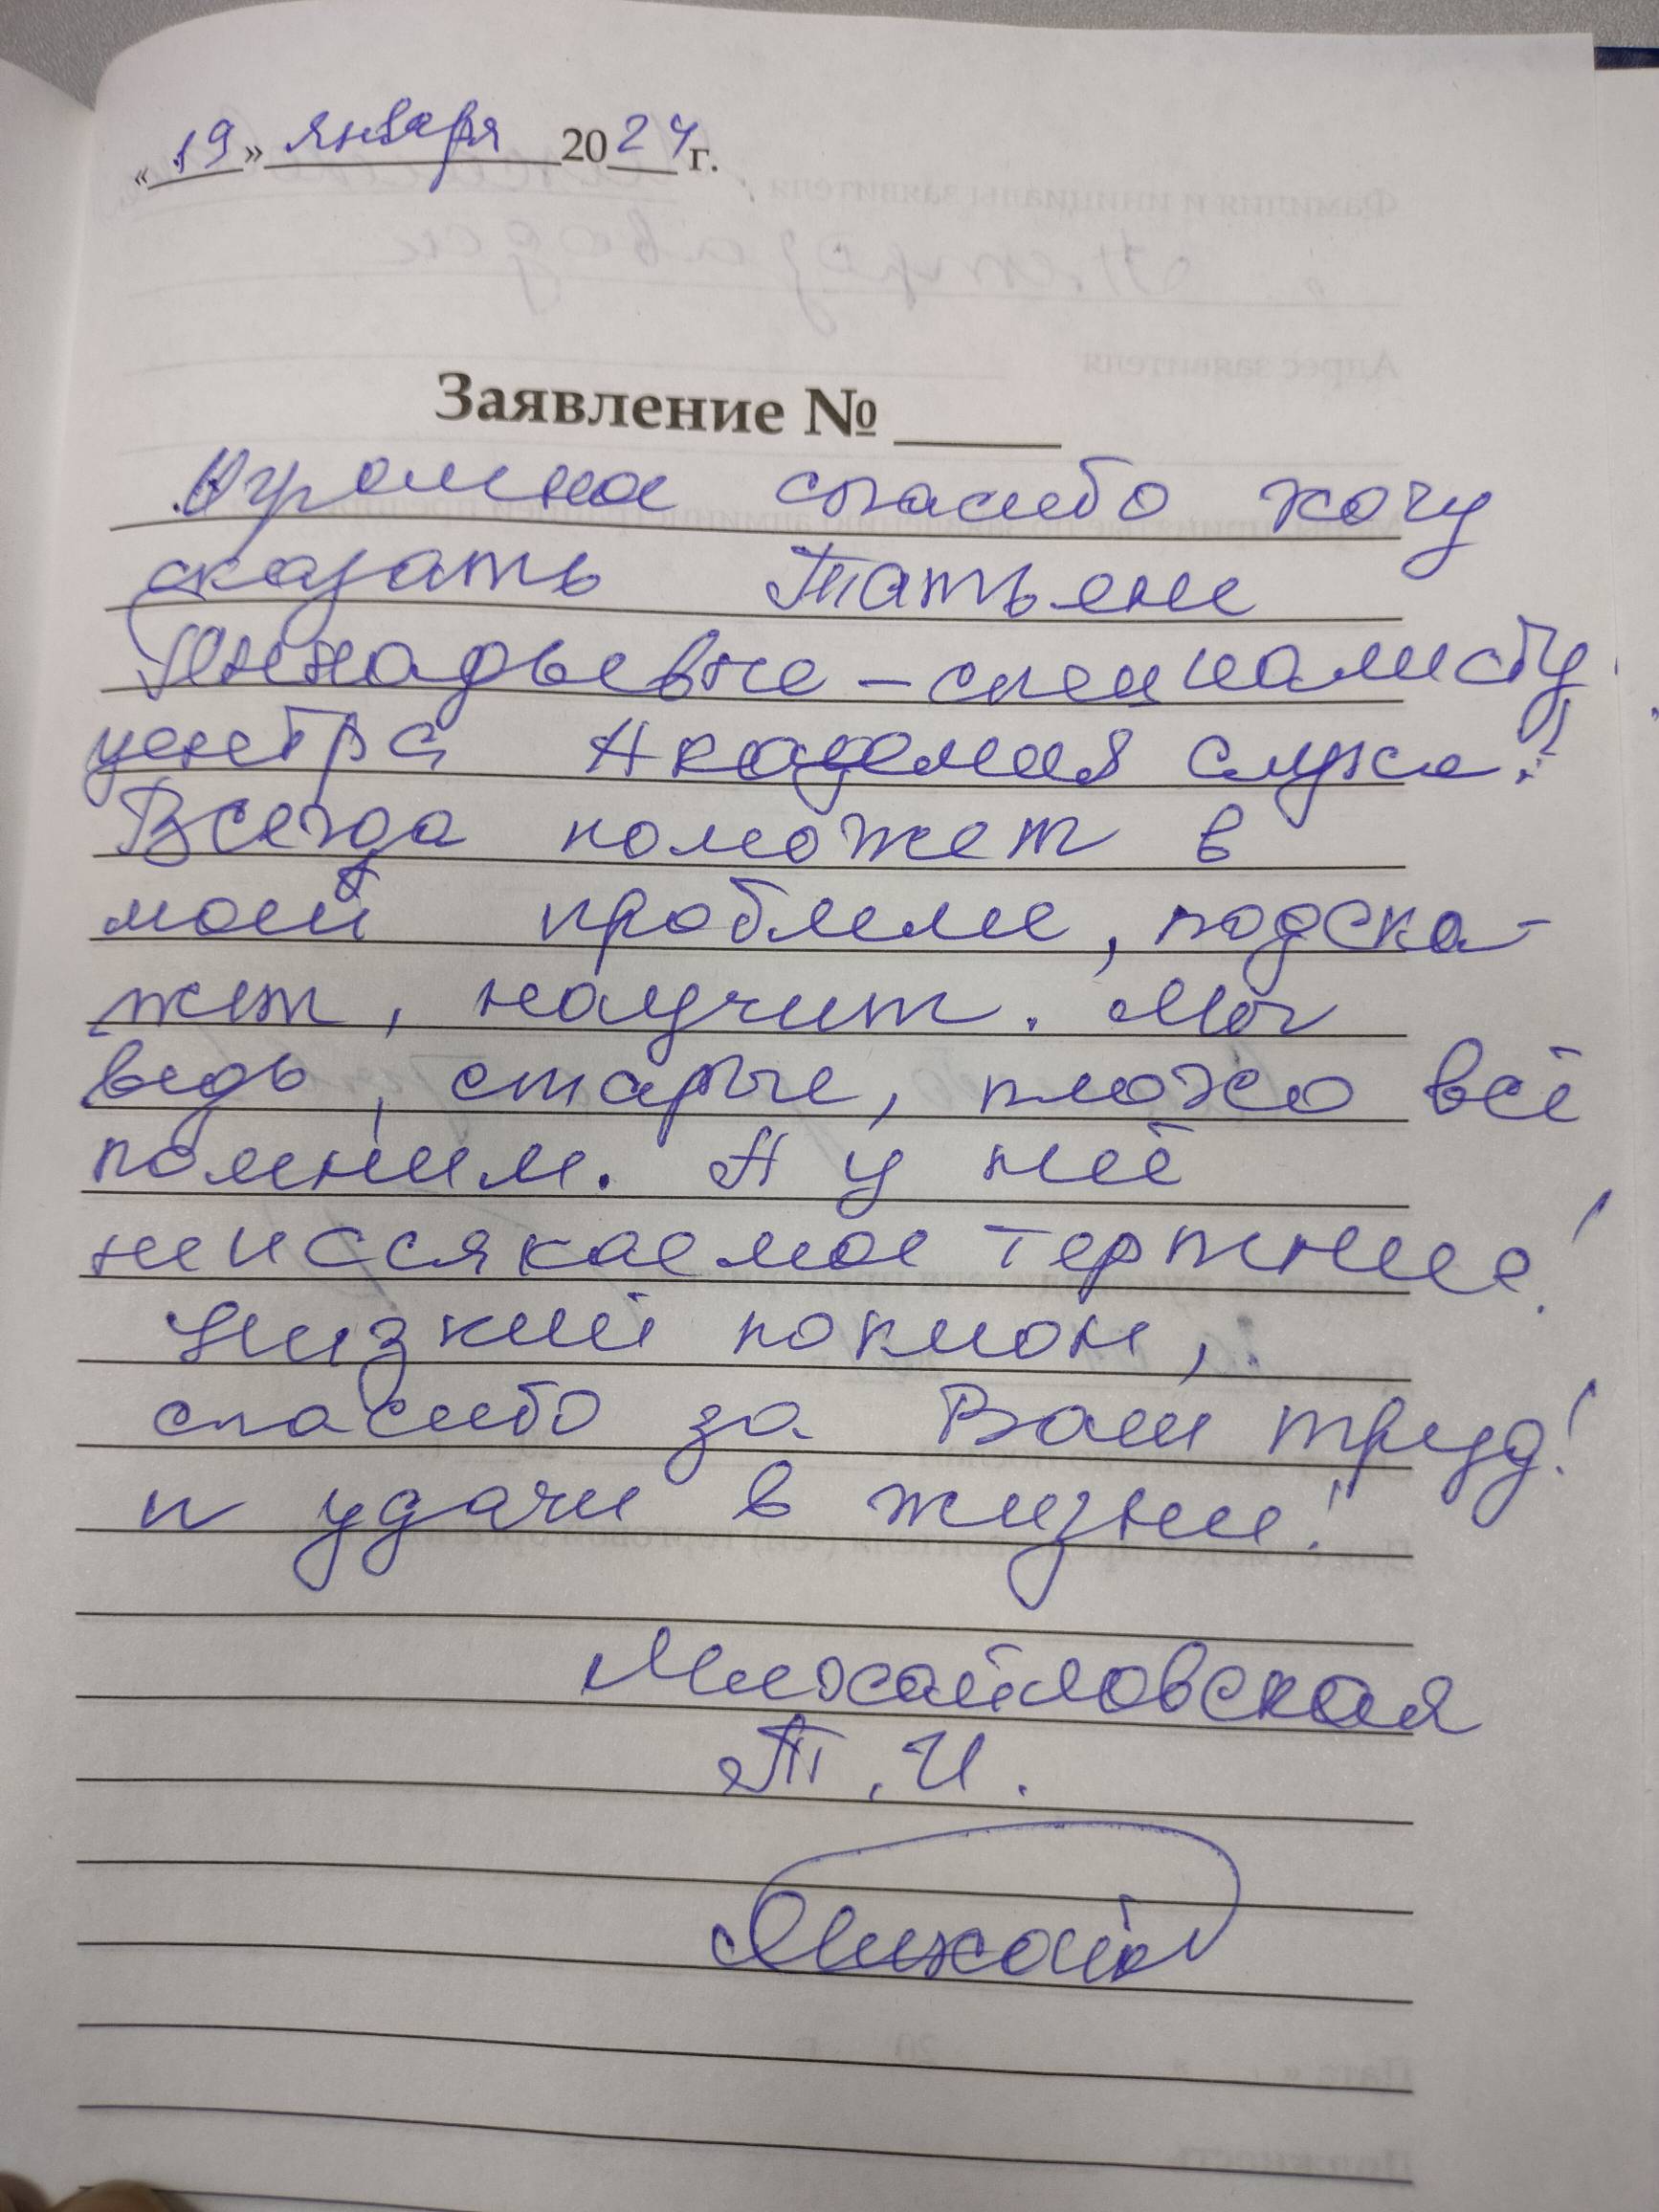 «19» января 2024г.
Заявление №
Огромное спасибо хочу
сказать Татьяне
Геннадьевне – специалисту
центра Академия слуха!
Всегда поможет в
моей проблеме, подска-
жет, научит. Мы
ведь, старые, плохо всё
помним. А у неё
неиссякаемое терпение!
Низкий поклон,
спасибо за Ваш труд!
и удачи в жизни!
Михайловская
Т. И.